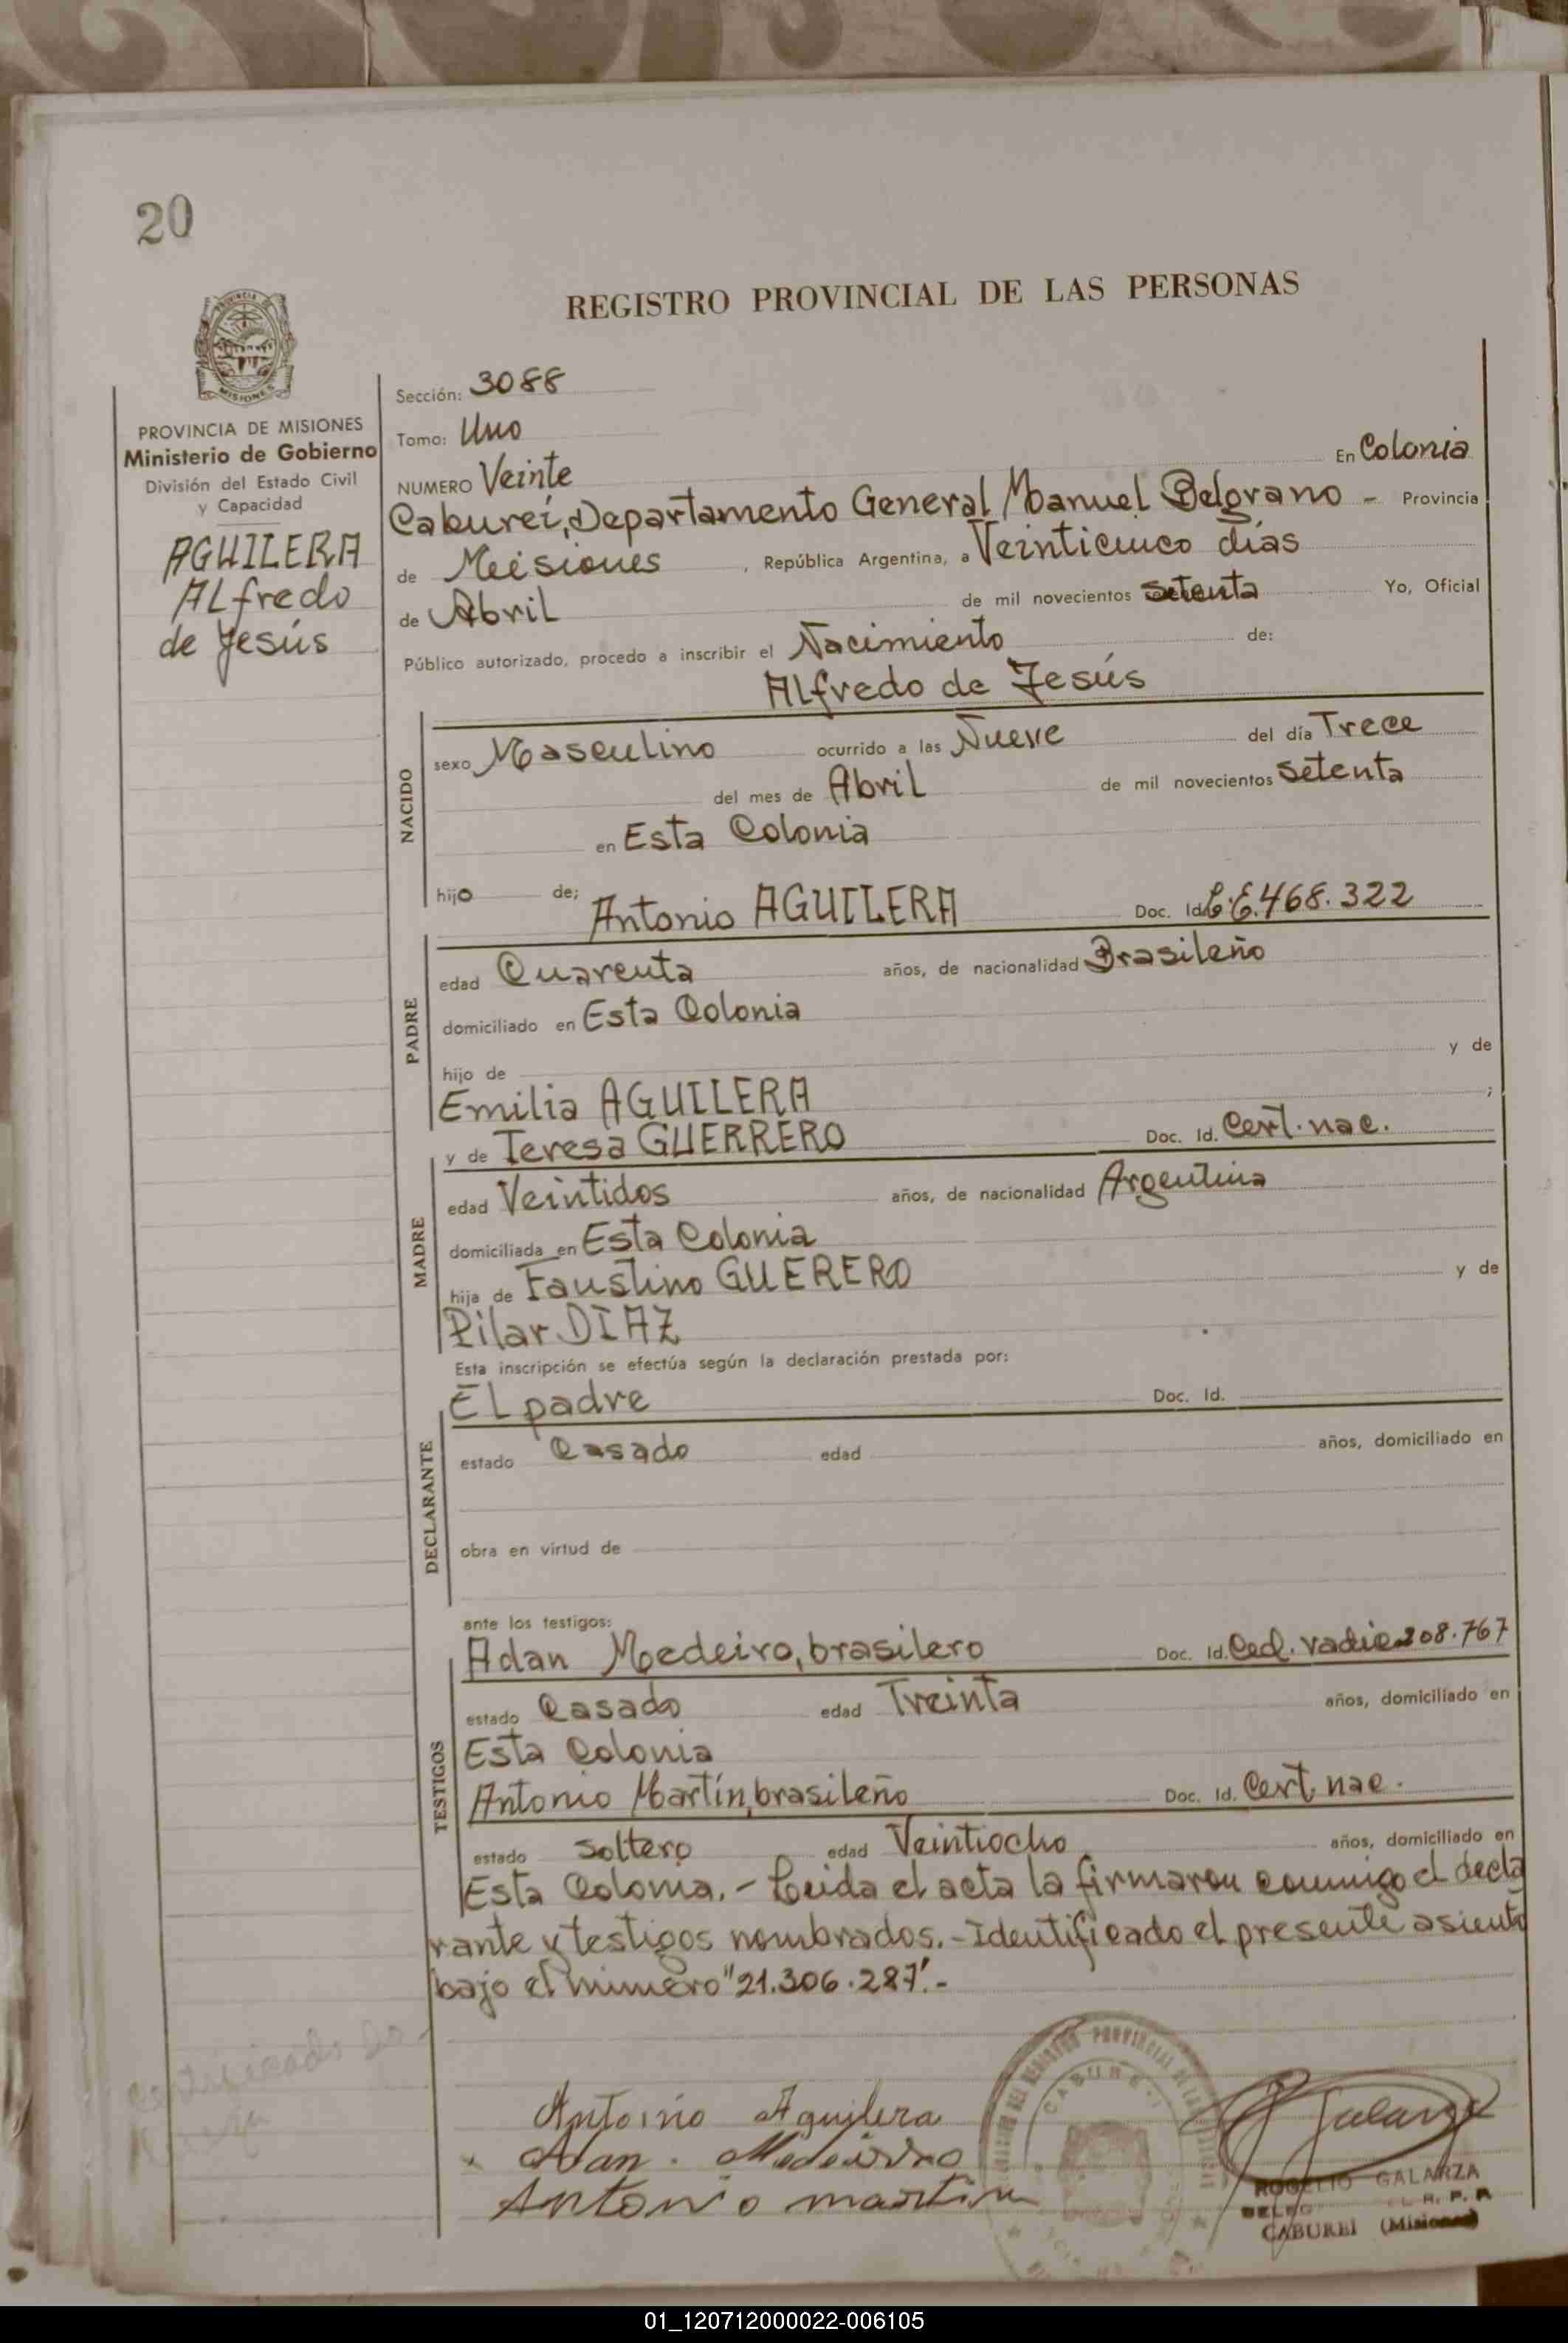 20
REGISTRO PROVINCIAL DE LAS PERSONAS
MISIONES
PROVINCIA DE MISIONES
Ministerio de Gobierno
División del Estado Civil
y Capacidad
AGUILERA
ALfredo
de Jesús
Sección: 3088
Tomo: Uno
NUMERO Veinte En Colonia
Cabureí, Departamento General Manuel Belgrano - Provincia
de Misiones, República Argentina, a Veinticinco días
de Abril de mil novecientos setenta Yo, Oficial
Público autorizado, procedo a inscribir el Nacimiento de:
ALfredo de Jesús
NACIDO
sexo Masculino ocurrido a las Nueve del día Trece
del mes de Abril de mil novecientos setenta
en Esta Colonia
hijo de; Antonio AGUILERA Doc. Id. 468.322
PADRE
edad Cuarenta años, de nacionalidad Brasileño
domiciliado en Esta Colonia
hijo de y de
Emilia AGUILERA ;
y de Teresa GUERRERO Doc. Id. Cert. nac.
MADRE
edad Veintidos años, de nacionalidad Argentina
domiciliada en Esta Colonia
hija de Faustino GUERERO y de
Pilar DIAZ
Esta inscripción se efectúa según la declaración prestada por:
EL padre Doc. Id.
DECLARANTE
estado Casado edad años, domiciliado en
obra en virtud de
ante los testigos:
Adan Medeiro, brasilero Doc. Id. Ced. 208.767
TESTIGOS
estado Casado edad Treinta años, domiciliado en
Esta Colonia
Antonio Martín, brasileño Doc. Id. Cert. nac.
estado soltero edad Veintiocho años, domiciliado en
Esta Colonia. - Leida el acta la firmaron conmigo el decla
rante y testigos nombrados. - Identificado el presente asiento
bajo el número "21.306.287". -
Antonio Aguilera
Adan. Medeiro
Antonio martin
Galarza
ROGELIO GALARZA
R. P. P.
CABUREI (Misiones)
01_120712000022-006105